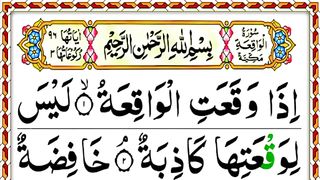 سُوْرَةُ الْوَاقِعَةِ مَكِّيَّةٌ
بِسْمِ اللهِ الرَّحْمٰنِ الرَّحِيْمِ
اٰيَاتُهَا ٩٦ رُكُوْعَاتُهَا ٣
اِذَا وَقَعَتِ الْوَاقِعَةُ ۙ ١ لَيْسَ
لِوَقْعَتِهَا كَاذِبَةٌ ۘ ٢ خَافِضَةٌ